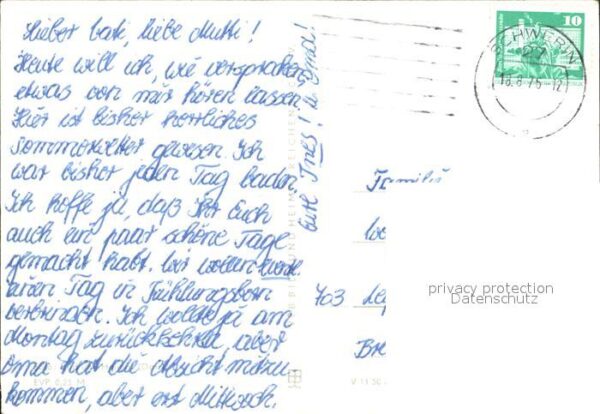 Lieber Vati, liebe Mutti!
Heute will ich, wie versprochen
etwas von mir hören lassen.
Hier ist bisher herrliches
Sommerwetter gewesen. Ich
war bisher jeden Tag baden.
Ich hoffe ja, daß Ihr Euch
auch ein paar schöne Tage
gemacht habt. Wir wollen
einen Tag in
verbringen. Ich wollte ja am
Montag zurückkehren, aber
Oma hat die Absicht mitzu
kommen, aber erst Mittwoch.
Eure Ines! u. Oma!
SCHWERIN
27
18.8.75-12
10
Familie
703
privacy protection
Datenschutz
EVP 0,25 M
V 11 50